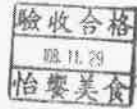 驗收合格
108.11.29
怡饗美食